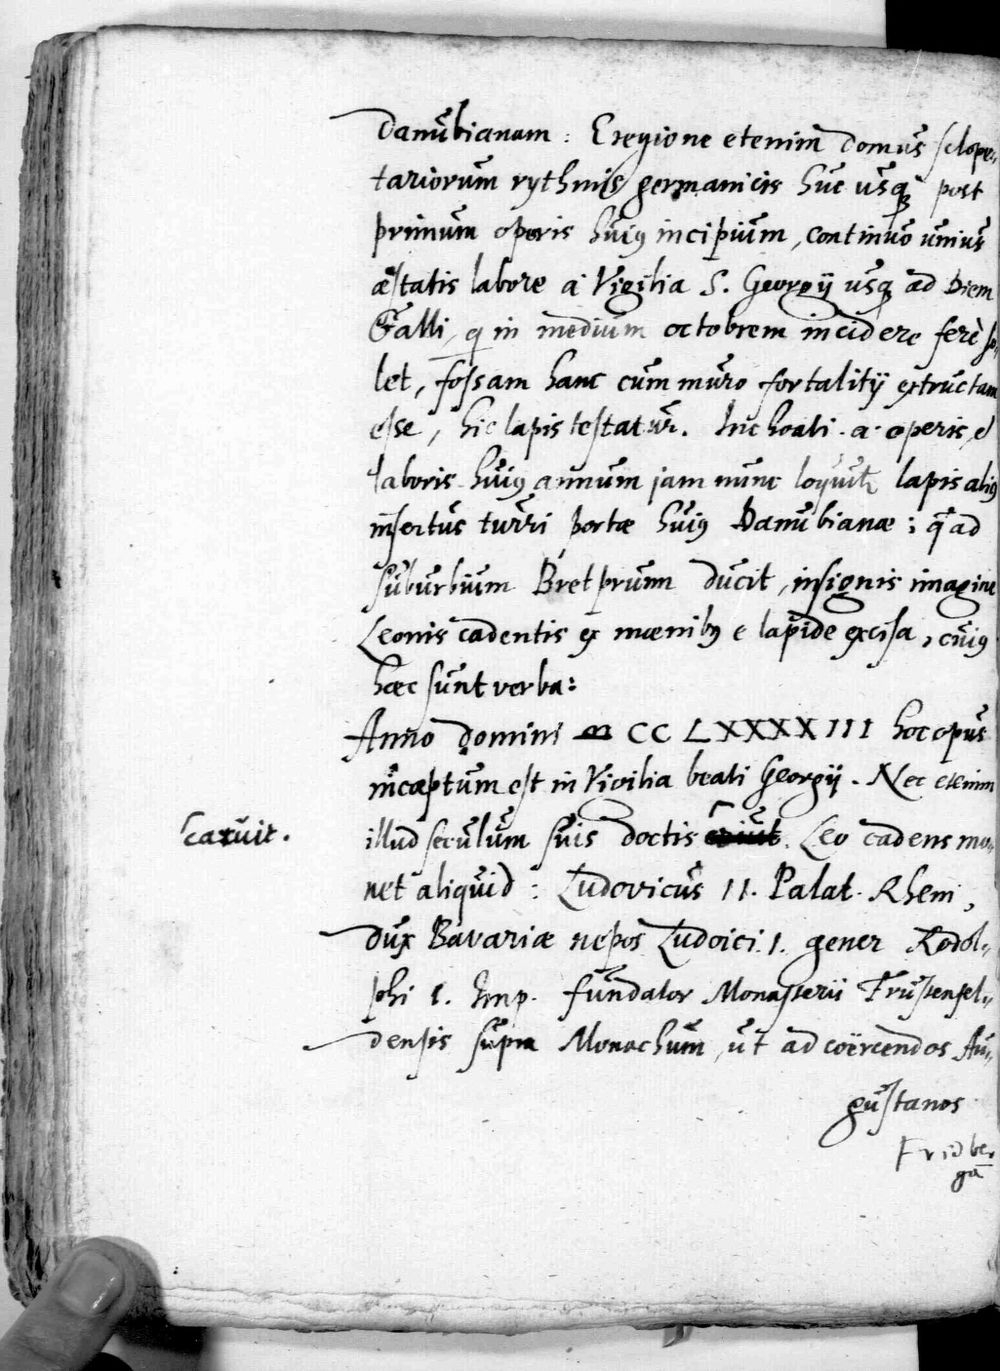 danubianam : Eregione etenim domus sclope-
tariorum rythmis germanicis huc usq, post
primum operis huiq incipium, continuo unius
æstatis labore a Vigilia S. Georgij usq ad Diem
Galli, q in medium octobrem incidere ferè so-
let, fossam hanc cum muro fortalitij extructam
esse, hic lapis testatur. Inchoati . a . operis, et
laboris huiq annum jam nunc loquit lapis aliq
insertus turri portæ huiq Danubianæ ; q ad
suburbium Bretprunn ducit, insignis imagine
Leonis cadentis ex mœnibq e lapide excisa, cuiq
hæc sunt verba:
Anno domini M CC LXXXXIII hoc opus
inceptum est in Vigilia beati Georgij. Nec etenim
caruit.
illud seculum suis doctis Leo cadens mo-
net aliquid : Ludovicus II. Palat. Rheni,
dux Bavariæ nepos Ludoici I. gener Rodol-
phi I. Imp. fundator Monasterii Frustenfel-
densis supra Monachum, ut ad coërcendos Au-
gustanos
Fridber-
gā